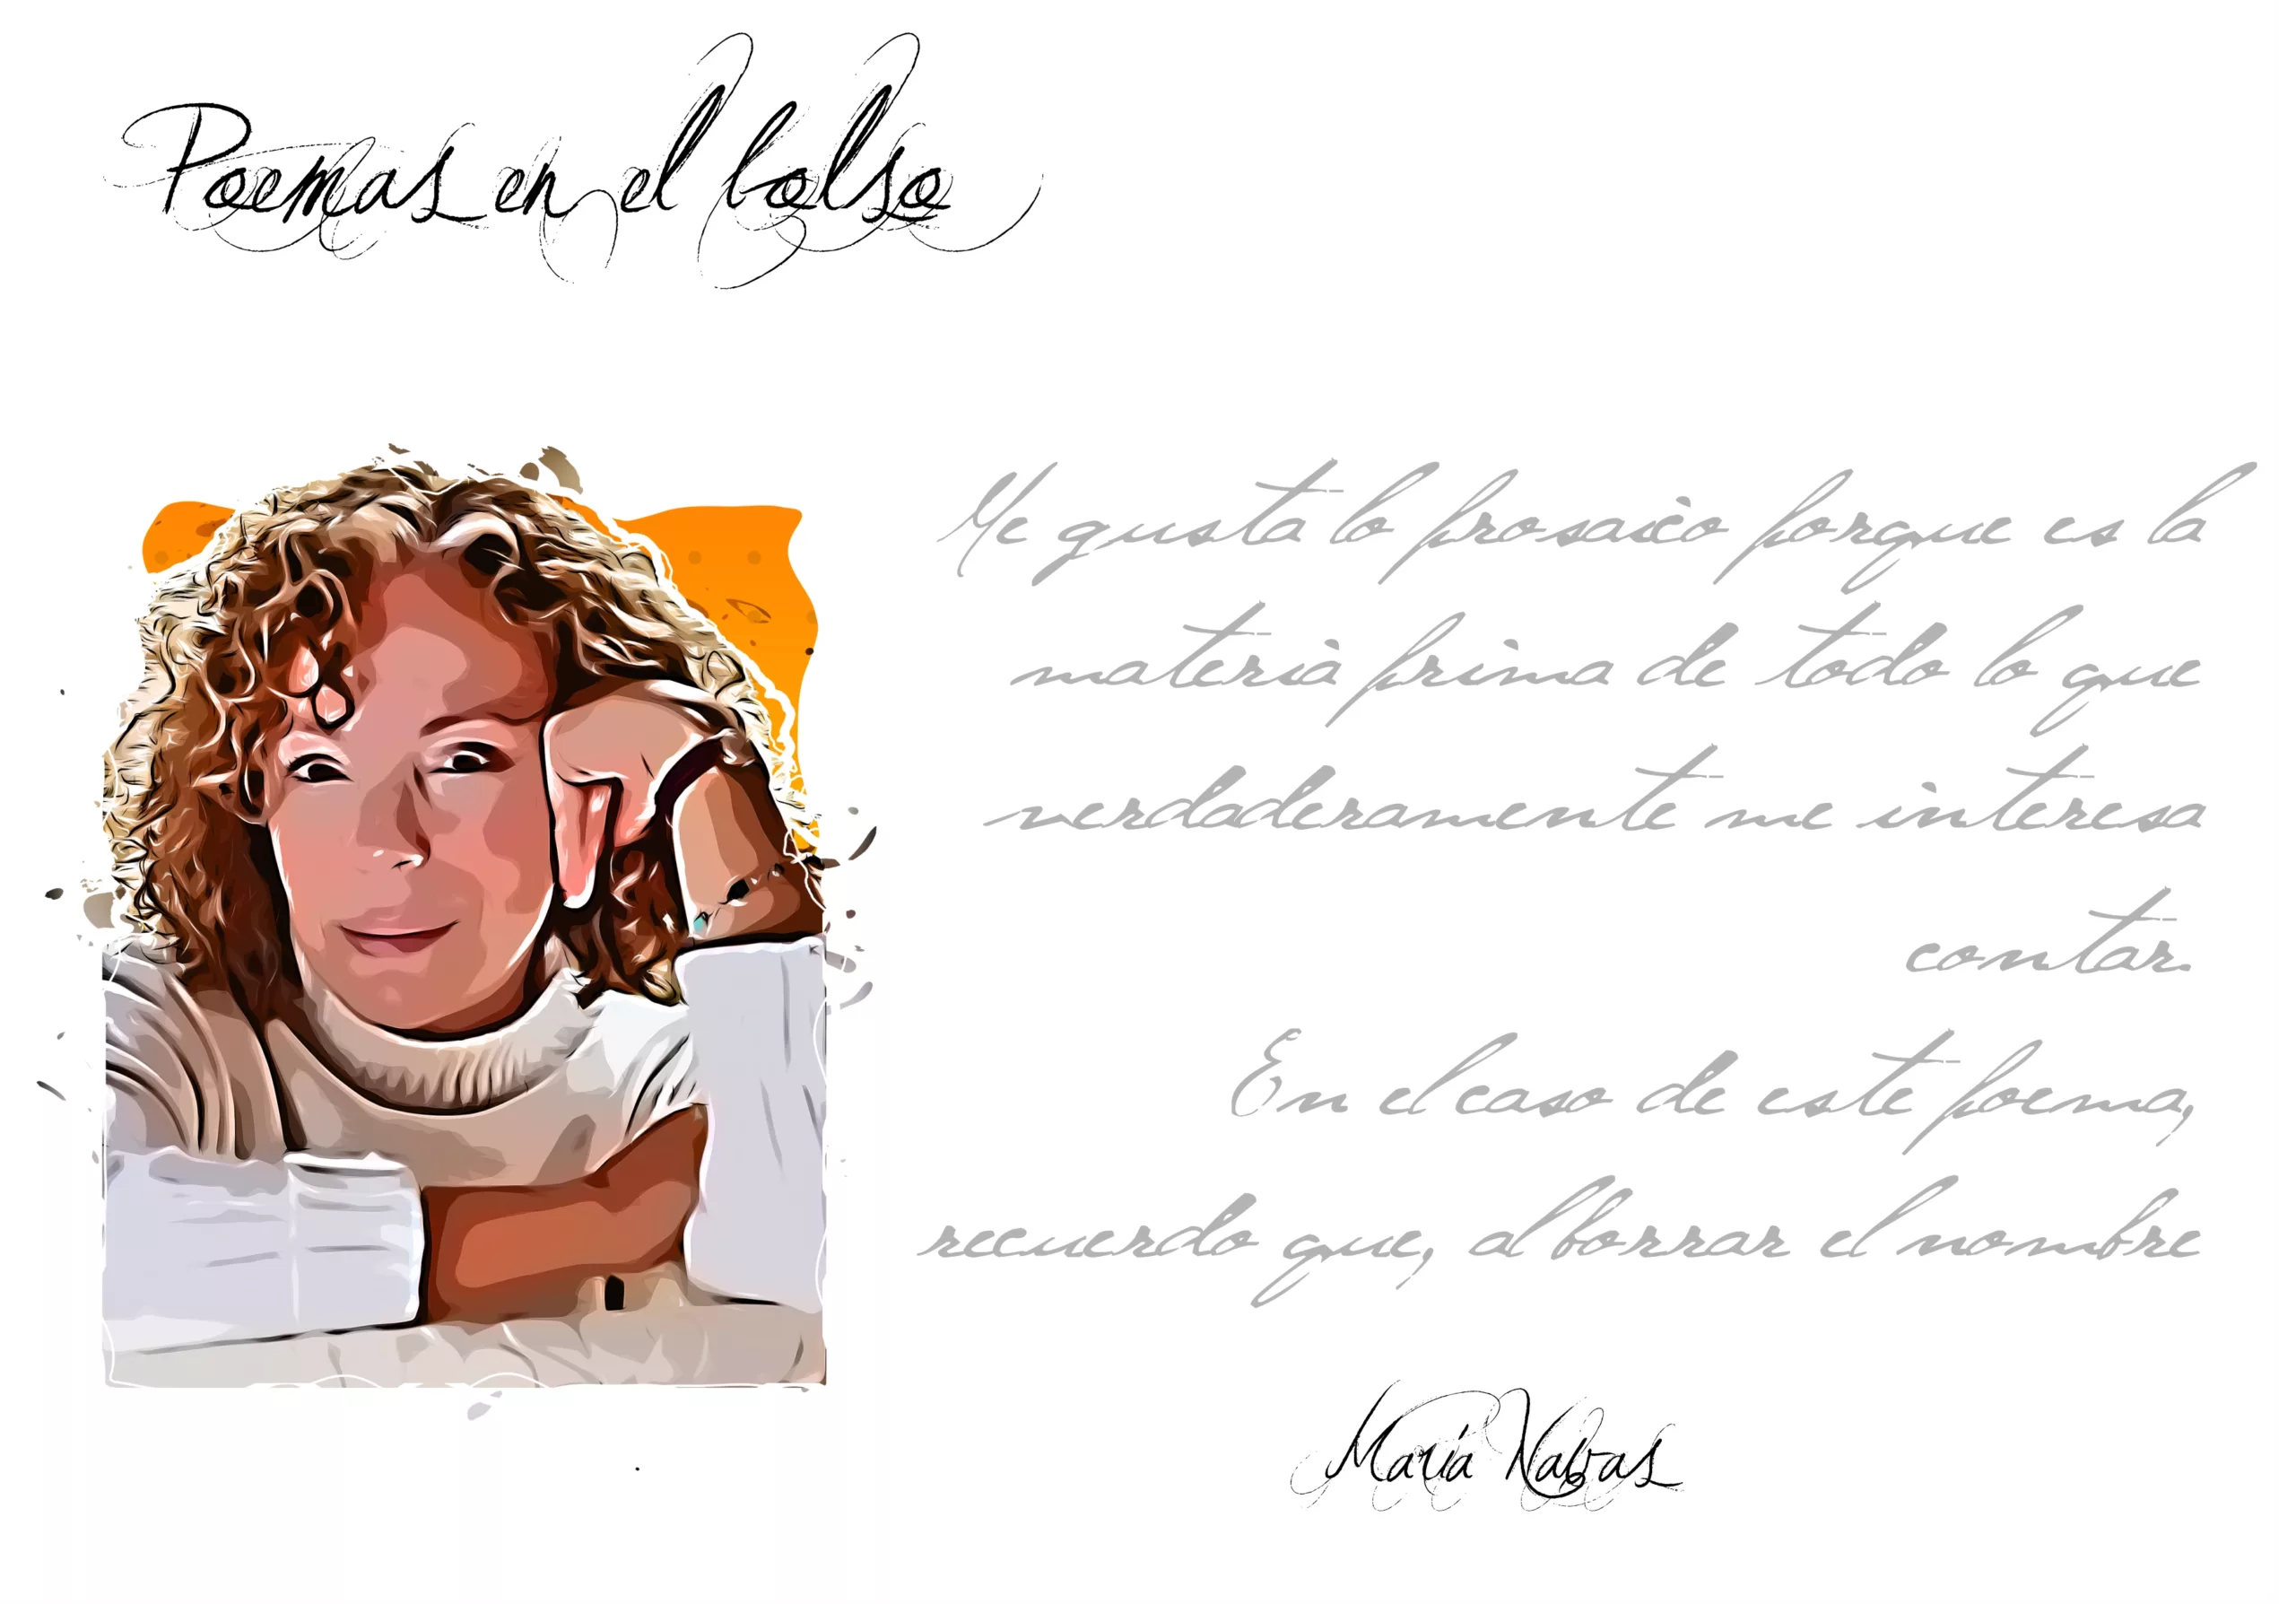 Poemas en el bolso
Me gusta lo prosaico porque es la
materia prima de todo lo que
verdaderamente me interesa
contar.
En el caso de este poema,
recuerdo que, al borrar el nombre
María Navas